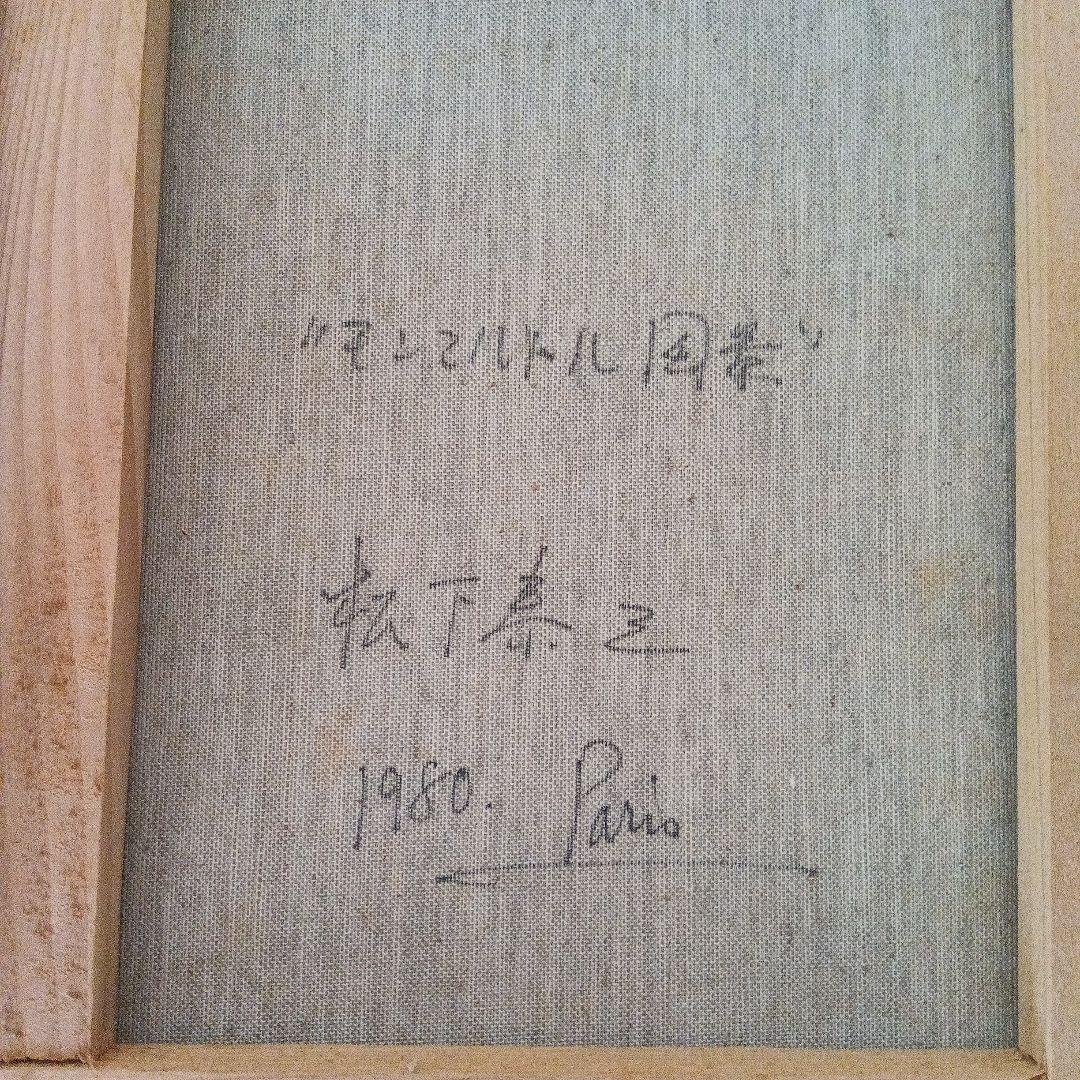 "モンマルトル風景"
松下泰三
1980. Paris